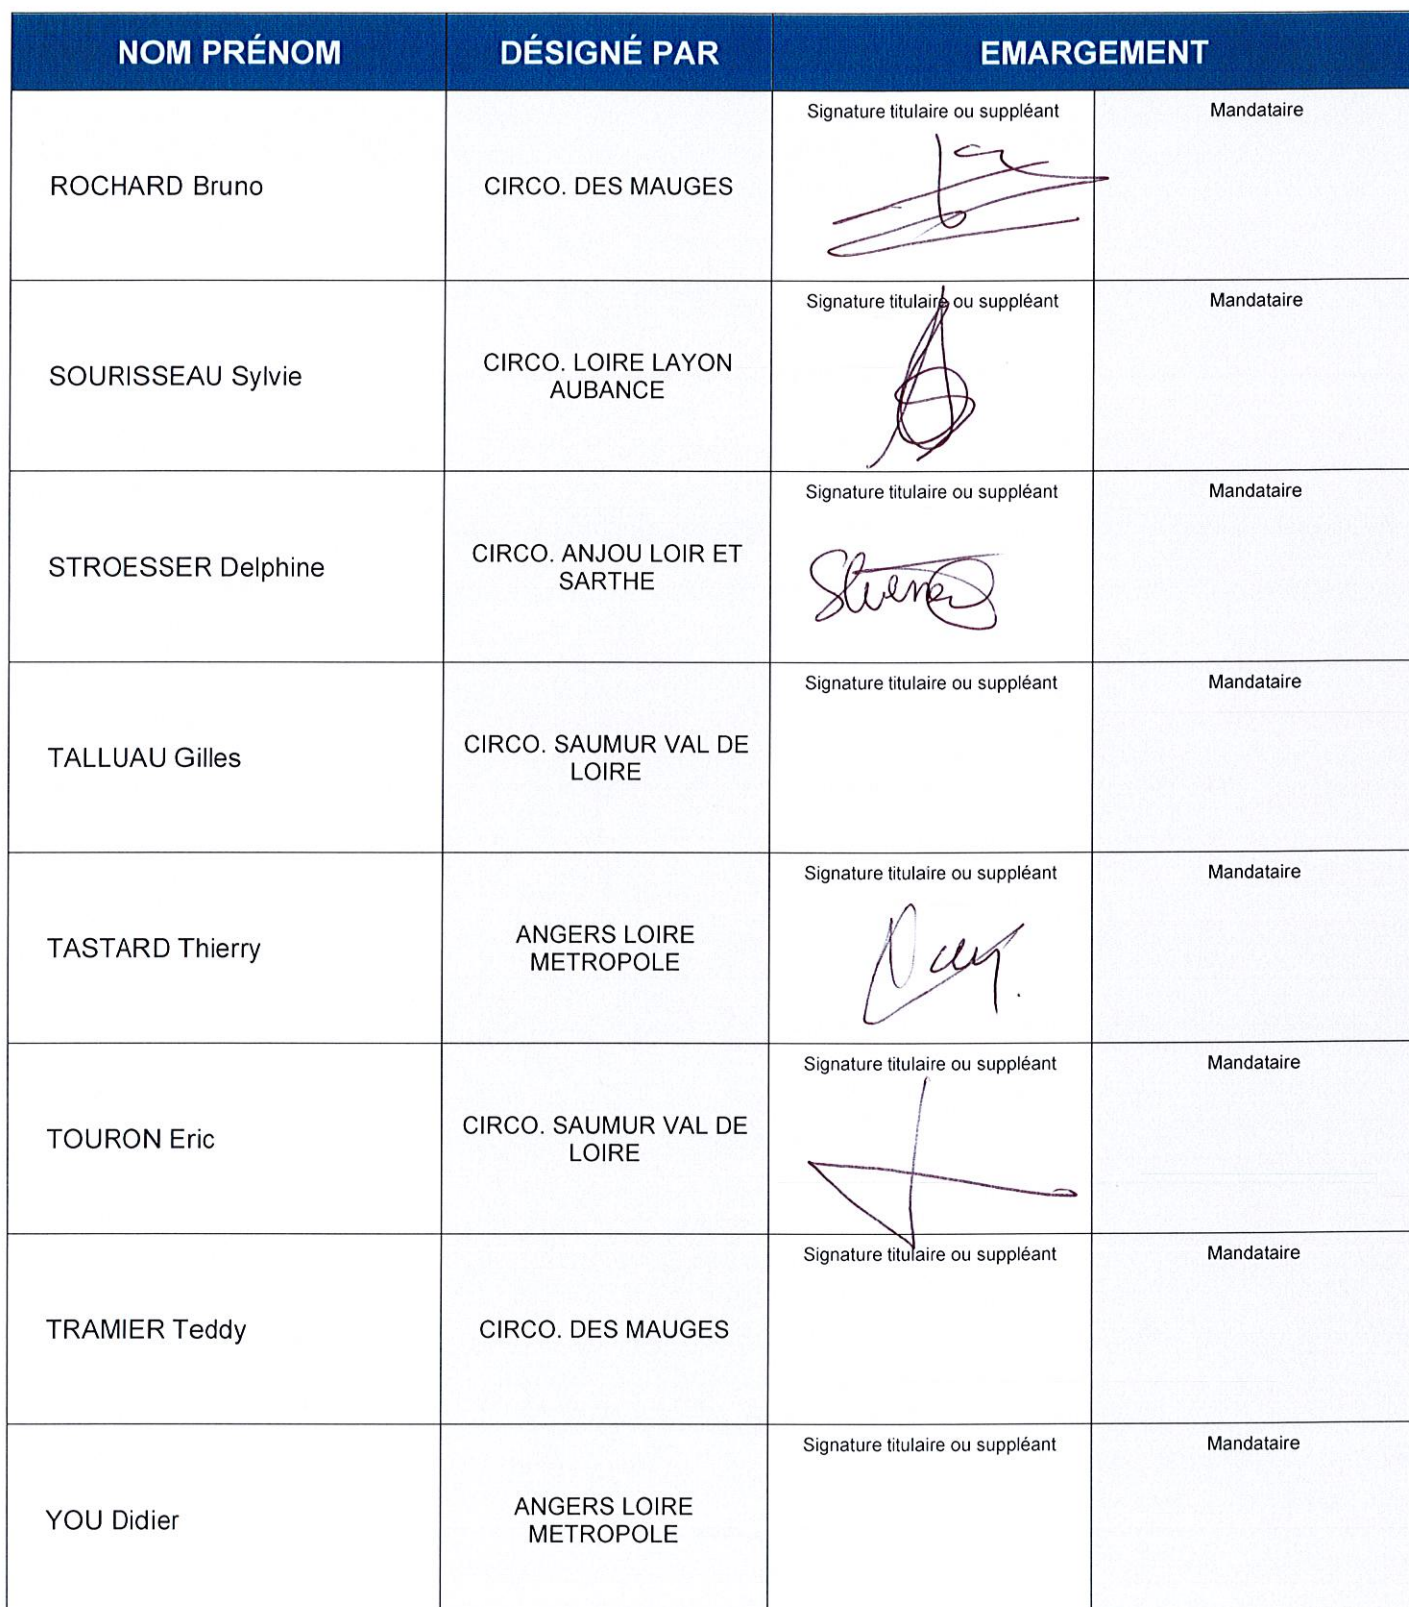 NOM PRÉNOM DÉSIGNÉ PAR EMARGEMENT
Signature titulaire ou suppléant Mandataire
ROCHARD Bruno CIRCO. DES MAUGES
Signature titulaire ou suppléant Mandataire
SOURISSEAU Sylvie CIRCO. LOIRE LAYON
AUBANCE
Signature titulaire ou suppléant Mandataire
STROESSER Delphine CIRCO. ANJOU LOIR ET
SARTHE
Signature titulaire ou suppléant Mandataire
TALLUAU Gilles CIRCO. SAUMUR VAL DE
LOIRE
Signature titulaire ou suppléant Mandataire
TASTARD Thierry ANGERS LOIRE
METROPOLE
Signature titulaire ou suppléant Mandataire
TOURON Eric CIRCO. SAUMUR VAL DE
LOIRE
Signature titulaire ou suppléant Mandataire
TRAMIER Teddy CIRCO. DES MAUGES
Signature titulaire ou suppléant Mandataire
YOU Didier ANGERS LOIRE
METROPOLE